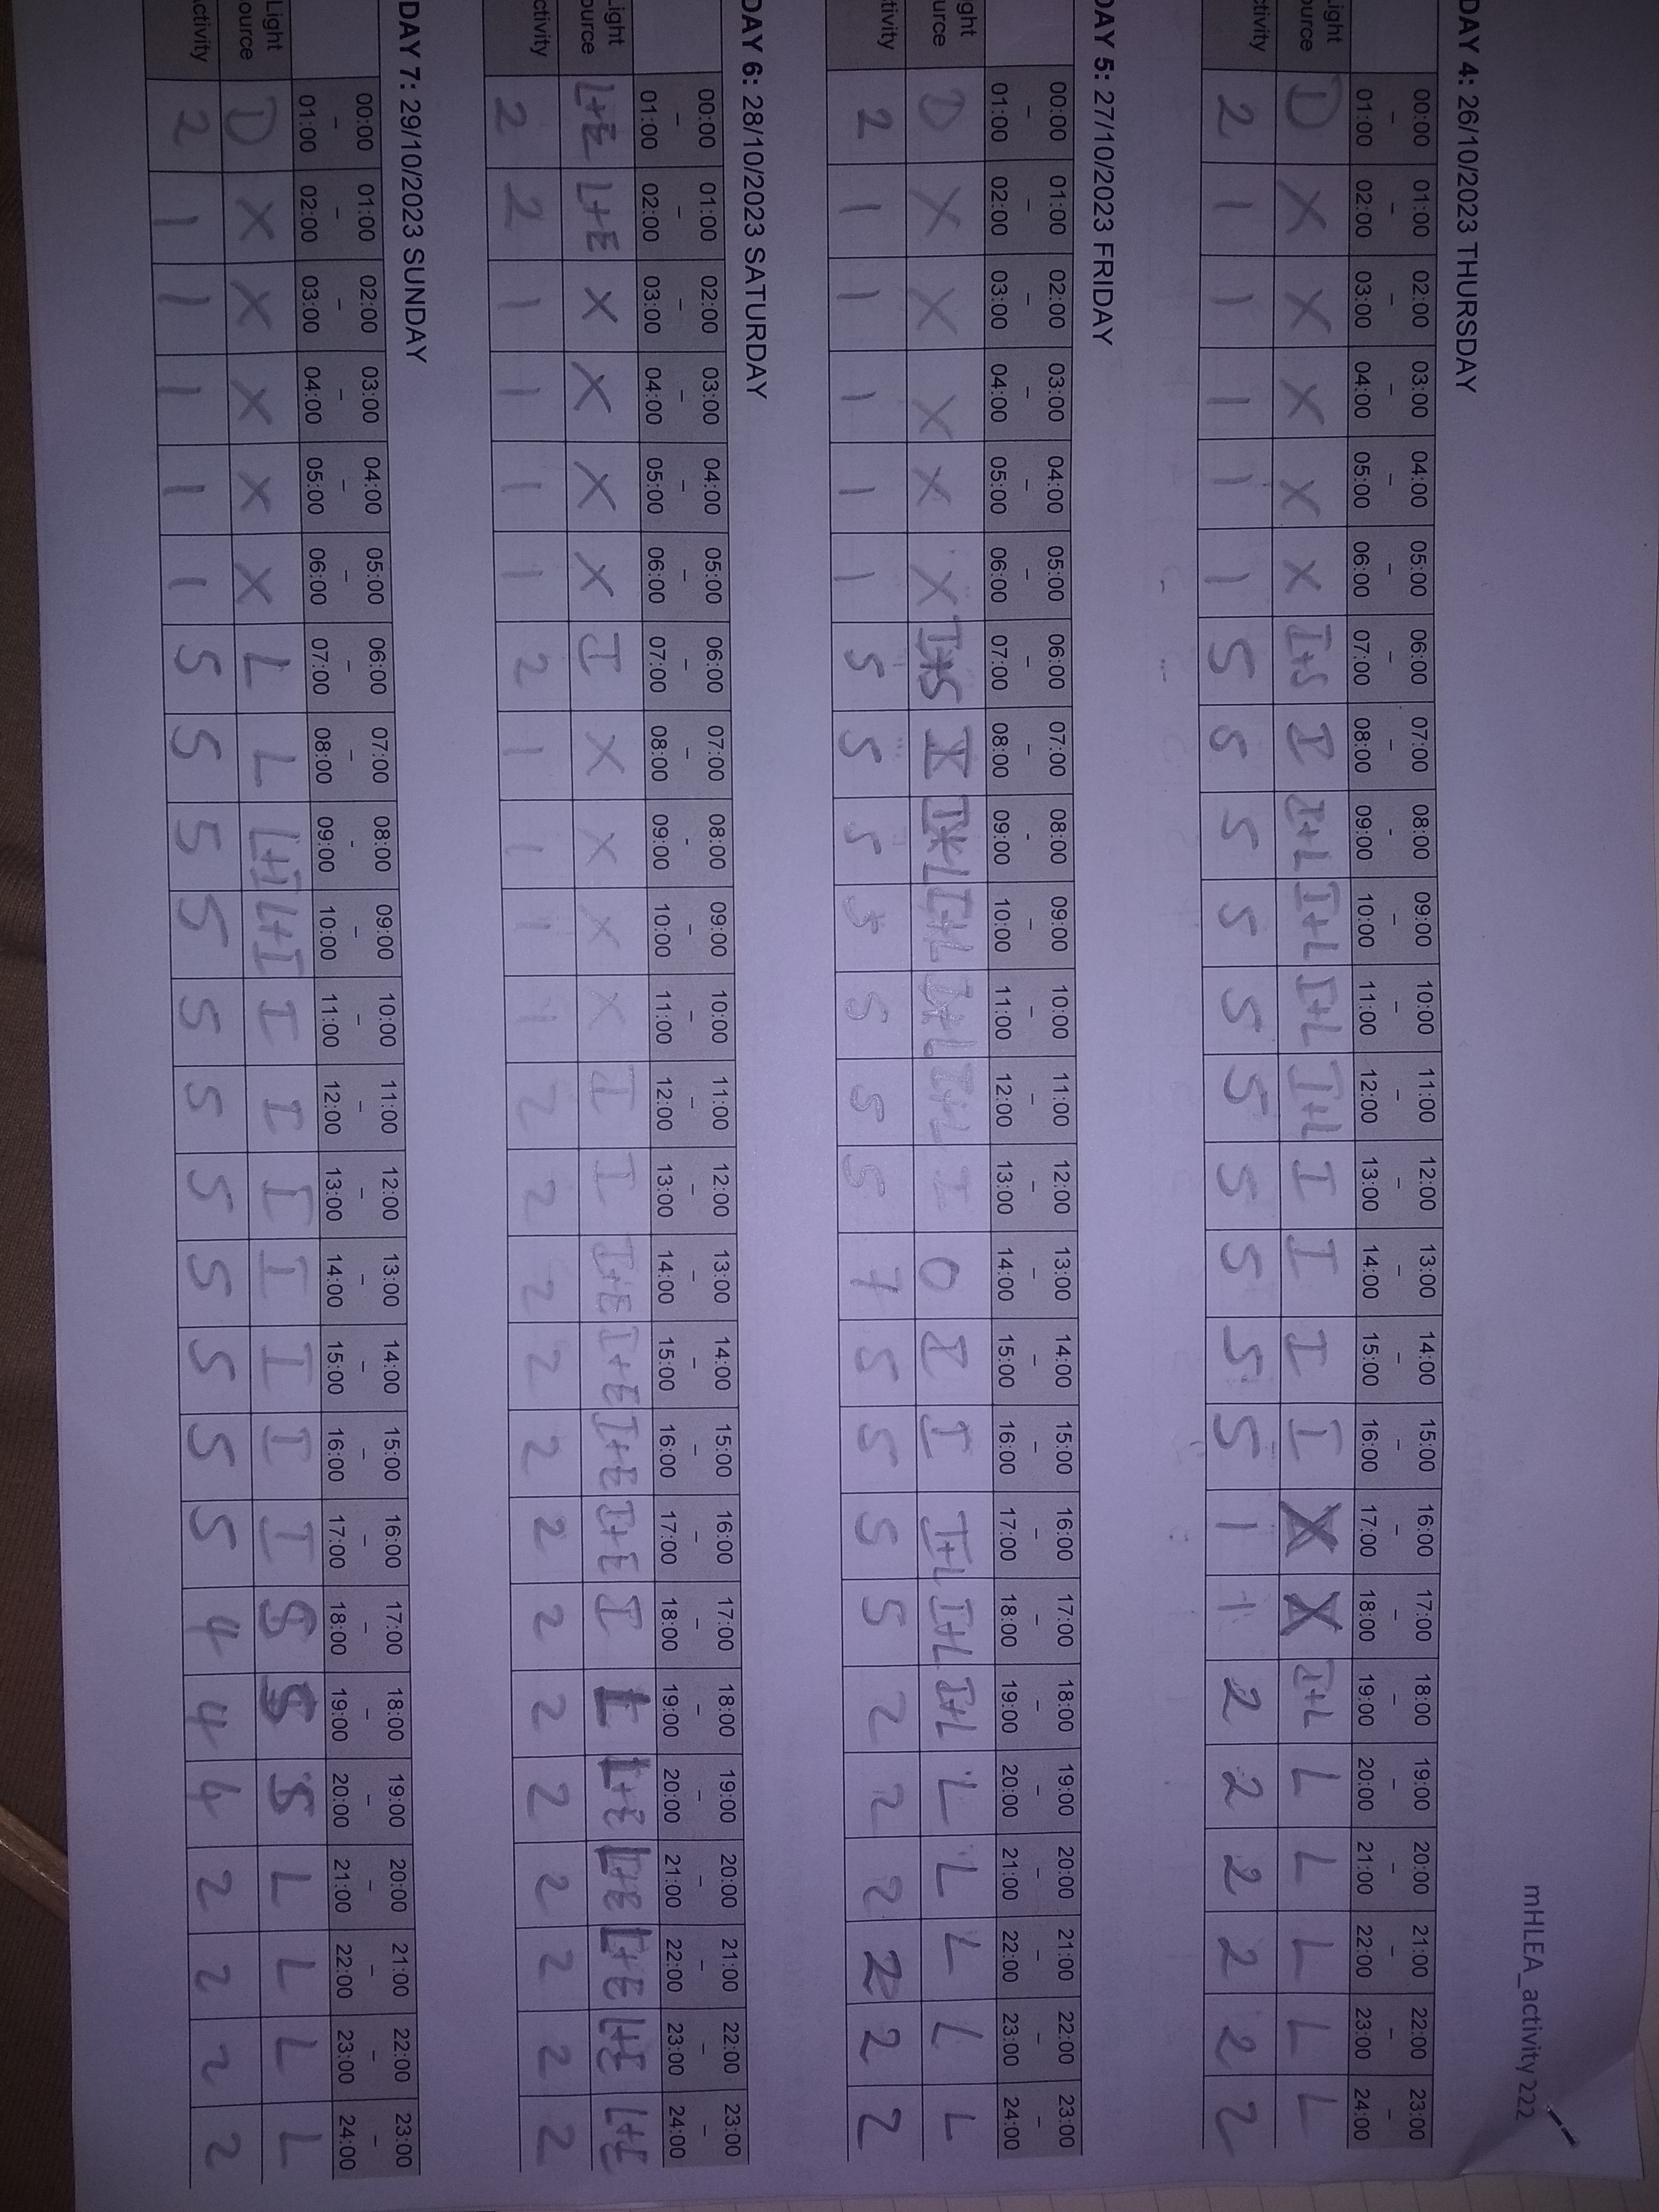 mHLEA_activity 222
DAY 4: 26/10/2023 THURSDAY
00:00 – 01:00 01:00 – 02:00 02:00 – 03:00 03:00 – 04:00 04:00 – 05:00 05:00 – 06:00 06:00 – 07:00 07:00 – 08:00 08:00 – 09:00 09:00 – 10:00 10:00 – 11:00 11:00 – 12:00 12:00 – 13:00 13:00 – 14:00 14:00 – 15:00 15:00 – 16:00 16:00 – 17:00 17:00 – 18:00 18:00 – 19:00 19:00 – 20:00 20:00 – 21:00 21:00 – 22:00 22:00 – 23:00 23:00 – 24:00
ight ource D X X X X X I+S I I+L I+L I+L I+L I I I I X X I+L L L L L L
ctivity 2 1 1 1 1 1 5 5 5 5 5 5 5 5 5 5 1 1 2 2 2 2 2 2
DAY 5: 27/10/2023 FRIDAY
00:00 – 01:00 01:00 – 02:00 02:00 – 03:00 03:00 – 04:00 04:00 – 05:00 05:00 – 06:00 06:00 – 07:00 07:00 – 08:00 08:00 - 09:00 09:00 – 10:00 10:00 – 11:00 11:00 – 12:00 12:00 – 13:00 13:00 – 14:00 14:00 – 15:00 15:00 – 16:00 16:00 – 17:00 17:00 – 18:00 18:00 – 19:00 19:00 – 20:00 20:00 – 21:00 21:00 – 22:00 22:00 – 23:00 23:00 – 24:00
ght urce D X X X X X I+S I I+L I+L I+L I+L I O I I I+L I+L I+L L L L L L
tivity 2 1 1 1 1 1 5 5 5 5 5 5 5 7 5 5 5 5 2 2 2 2 2 2
DAY 6: 28/10/2023 SATURDAY
00:00 – 01:00 01:00 – 02:00 02:00 – 03:00 03:00 – 04:00 04:00 – 05:00 05:00 – 06:00 06:00 – 07:00 07:00 – 08:00 08:00 - 09:00 09:00 – 10:00 10:00 – 11:00 11:00 – 12:00 12:00 – 13:00 13:00 – 14:00 14:00 – 15:00 15:00 – 16:00 16:00 – 17:00 17:00 – 18:00 18:00 – 19:00 19:00 – 20:00 20:00 – 21:00 21:00 – 22:00 22:00 – 23:00 23:00 – 24:00
Light ource L+E L+E X X X X I X X X X I I I+E I+E I+E I+E I L L+E L+E L+E L+E L+E
ctivity 2 2 1 1 1 1 2 1 1 1 1 2 2 2 2 2 2 2 2 2 2 2 2 2
DAY 7: 29/10/2023 SUNDAY
00:00 – 01:00 01:00 – 02:00 02:00 – 03:00 03:00 – 04:00 04:00 – 05:00 05:00 – 06:00 06:00 – 07:00 07:00 – 08:00 08:00 - 09:00 09:00 – 10:00 10:00 – 11:00 11:00 – 12:00 12:00 – 13:00 13:00 – 14:00 14:00 – 15:00 15:00 – 16:00 16:00 – 17:00 17:00 – 18:00 18:00 – 19:00 19:00 – 20:00 20:00 – 21:00 21:00 – 22:00 22:00 – 23:00 23:00 – 24:00
Light ource D X X X X X L L L+I L+I I I I I I I I S S S L L L L
ctivity 2 1 1 1 1 1 5 5 5 5 5 5 5 5 5 5 5 4 4 4 2 2 2 2